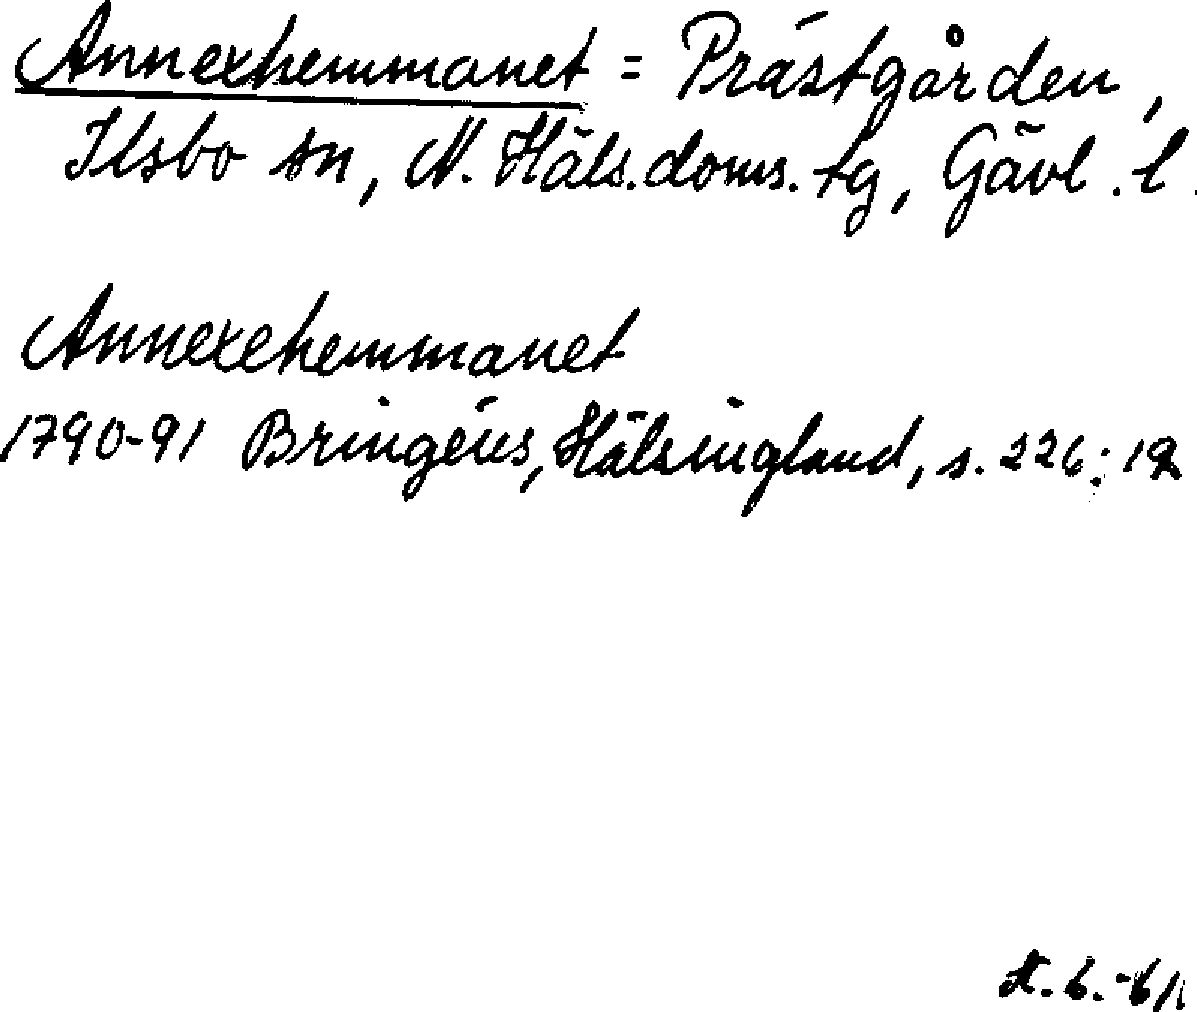 Annexhemmanet = Prästgården,
Ilsbo sn, N. Häls. doms. tg, Gävl. l.
Annexehemmanet
1790-91 Bringéus, Hälsingland, s. 226: